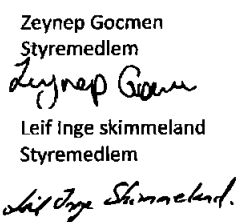 Zeynep Gocmen
Styremedlem
Zeynep Gocmen
Leif Inge skimmeland
Styremedlem
Leif Inge Skimmeland.